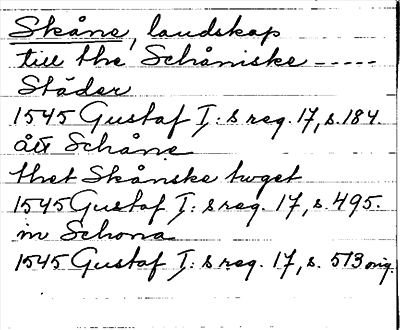 Skåne, landskap
till the Schåniske -----
Städer
1545 Gustaf I: s reg. 17, s. 184.
ått Schåne
thet Skånske toget
1545 Gustaf I: s reg. 17, s. 495.
in Schona
1545 Gustaf I: s reg. 17, s. 513 orig.